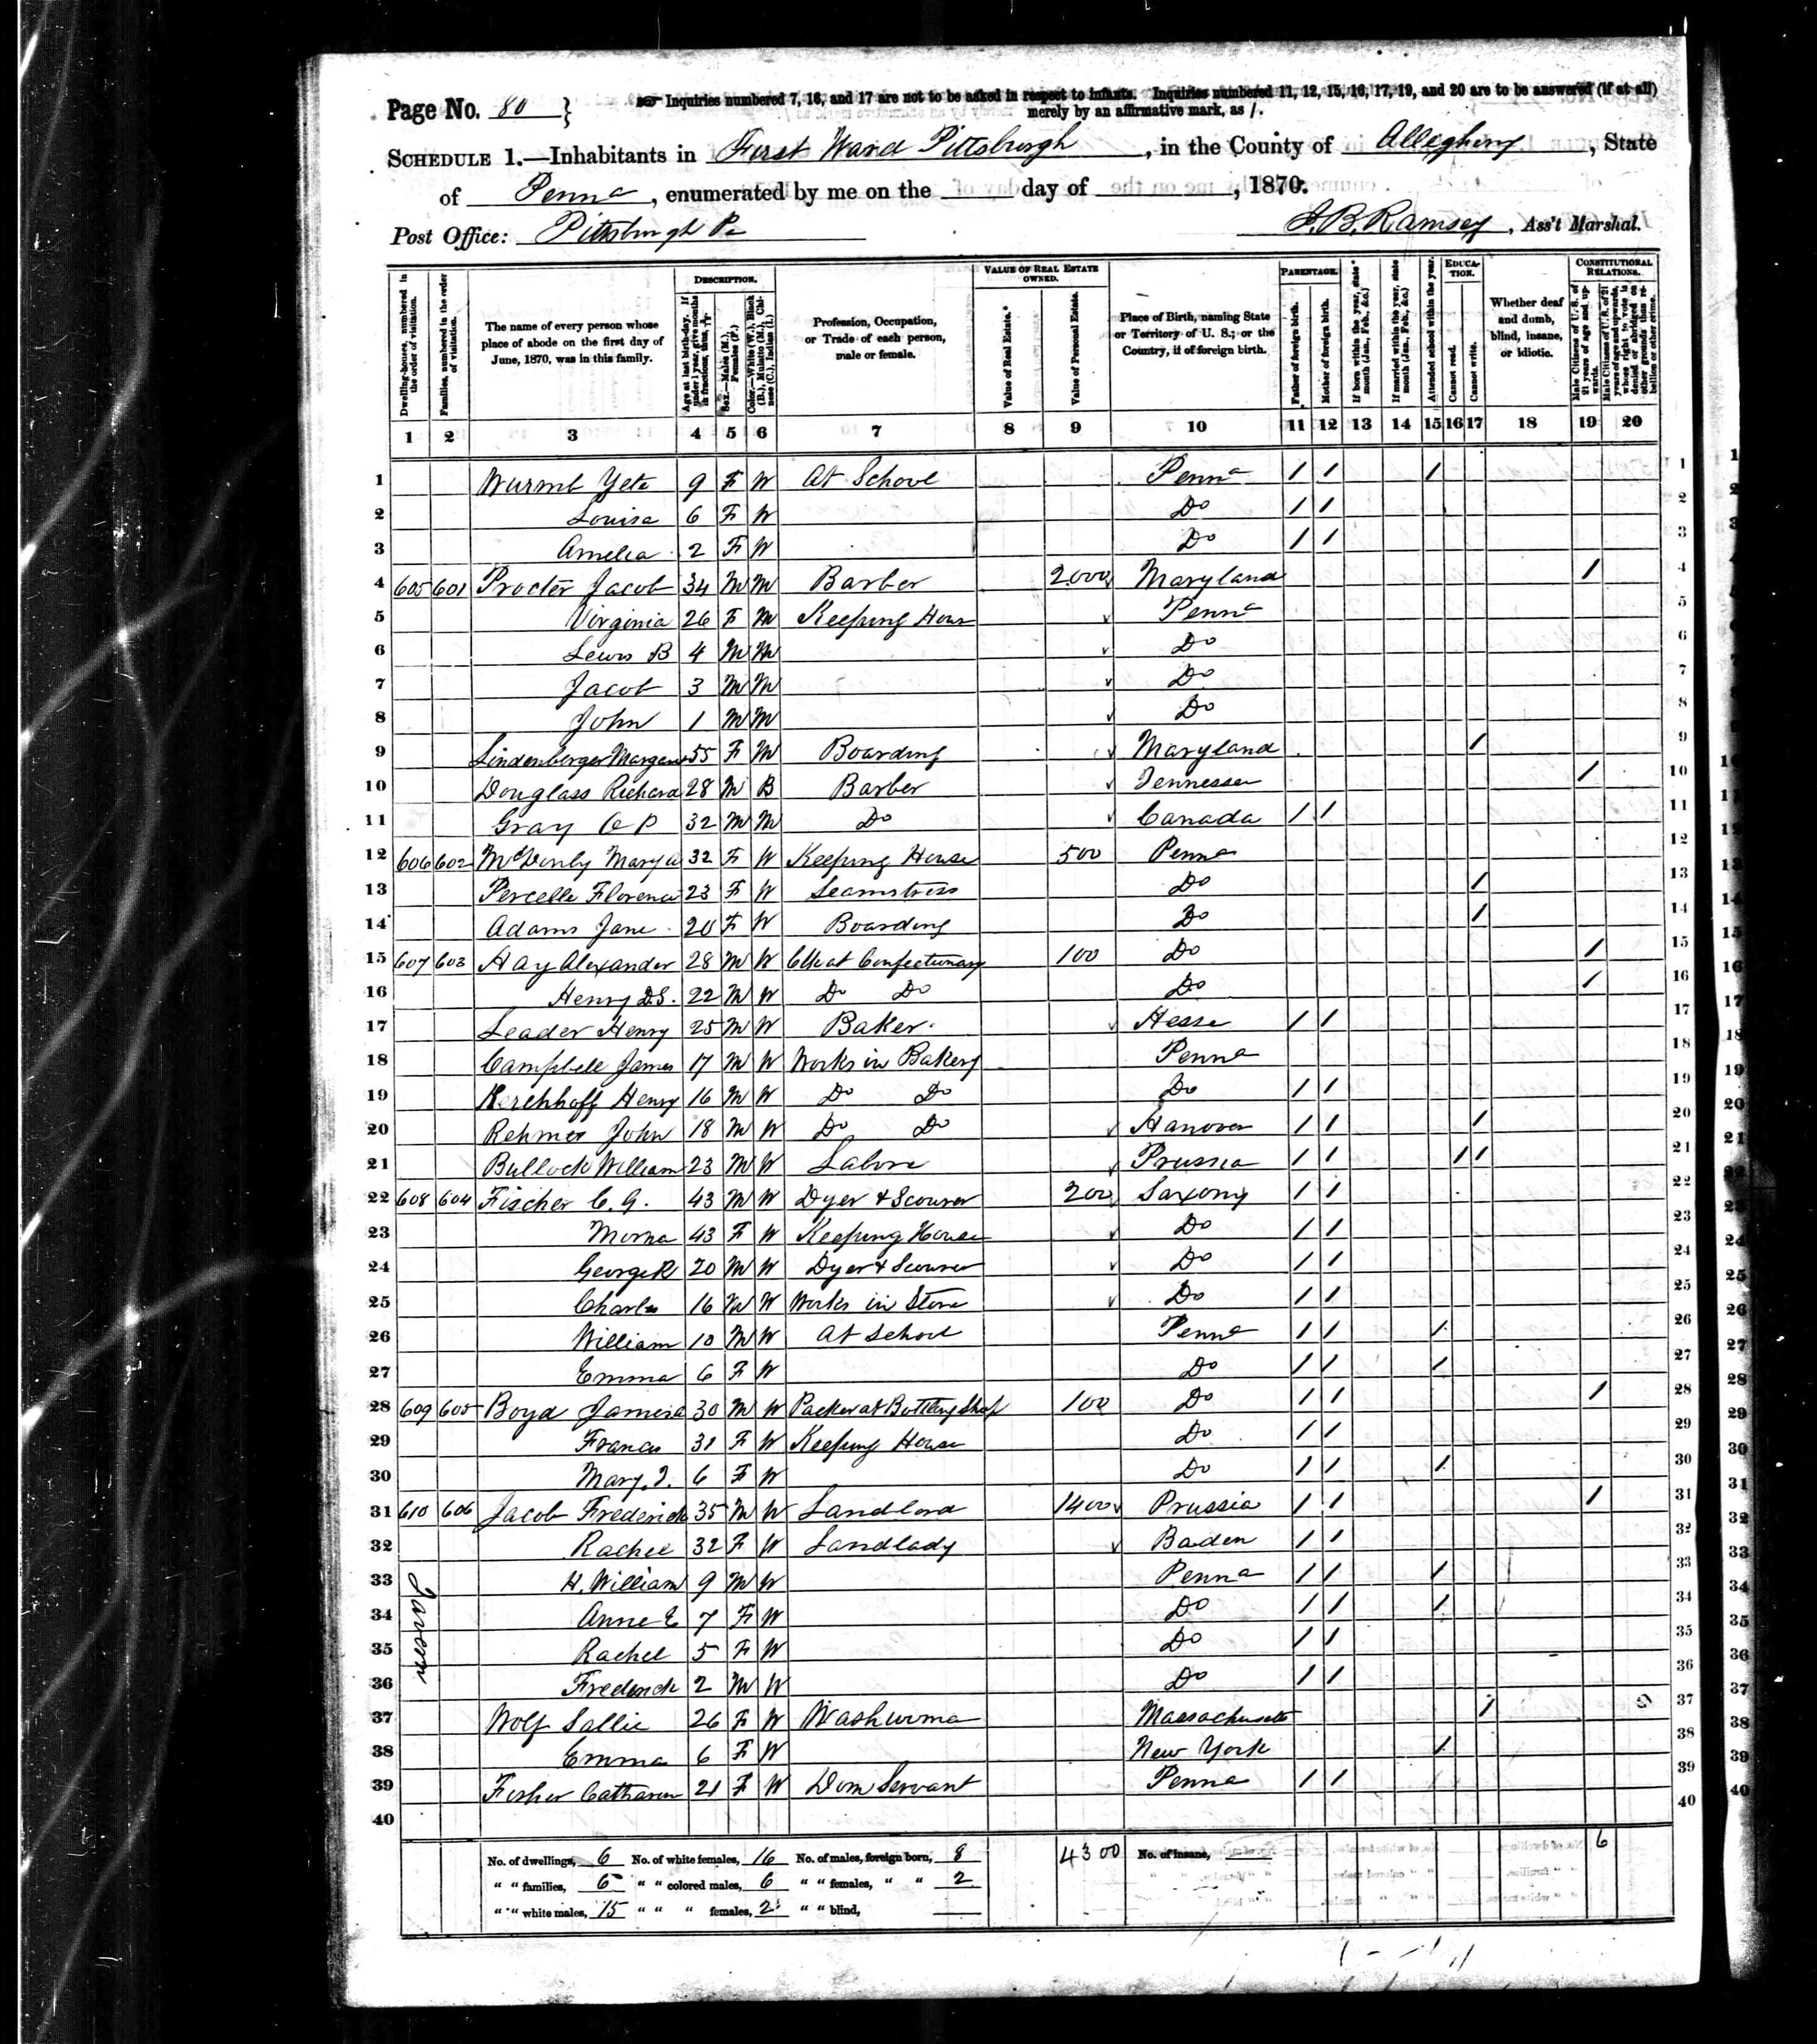 Page No. 80 } Inquiries numbered 7, 16, and 17 are not to be asked in respect to infants. Inquiries numbered 11, 12, 15, 16, 17, 19, and 20 are to be answered (if at all)
merely by an affirmative mark, as /.
SCHEDULE 1.—Inhabitants in First Ward Pittsburgh, in the County of Allegheny, State
of Penna, enumerated by me on the day of , 1870.
Post Office: Pittsburgh Pa J. B. Ramsey, Ass't Marshal.
Dwelling-houses, numbered in the order of visitation.
Families, numbered in the order of visitation.
The name of every person whose place of abode on the first day of June, 1870, was in this family.
DESCRIPTION.
Age at last birth-day. If under 1 year, give months in fractions, thus,
Sex.—Males (M.), Females (F.)
Color.—White (W.), Black (B.), Mulatto (M.), Chinese (C.), Indian (I.)
Profession, Occupation, or Trade of each person, male or female.
VALUE OF REAL ESTATE OWNED.
Value of Real Estate.
Value of Personal Estate.
Place of Birth, naming State or Territory of U. S.; or the Country, if of foreign birth.
PARENTAGE.
Father of foreign birth.
Mother of foreign birth.
If born within the year, state month (Jan., Feb., &c.)
If married within the year, state month (Jan., Feb., &c.)
EDUCATION.
Attended school within the year.
Cannot read.
Cannot write.
Whether deaf and dumb, blind, insane, or idiotic.
CONSTITUTIONAL RELATIONS.
Male Citizens of U. S. of 21 years of age and upwards.
Male Citizens of U. S. of 21 years of age and upwards, whose right to vote is denied or abridged on other grounds than rebellion or other crime.
1 2 3 4 5 6 7 8 9 10 11 12 13 14 15 16 17 18 19 20
1 Wurmb Yete 9 F W At School Penna / / / 1
2 Louisa 6 F W Do / / 2
3 Amelia 2 F W Do / / 3
4 605 601 Procter Jacob 34 M M Barber 2000 Maryland / 4
5 Virginia 26 F M Keeping Hous Penna 5
6 Lewis B 4 M M Do 6
7 Jacob 3 M M Do 7
8 John 1 M M Do 8
9 Lindenberger Margaret 55 F M Boarding Maryland / 9
10 Douglass Richard 28 M B Barber Tennessee / 10
11 Gray O P 32 M M Do Canada / / 11
12 606 602 Mary A 32 F W Keeping House 500 Penna 12
13 Percelle Florence 23 F W Seamstress Do / 13
14 Adams Jane 20 F W Boarding Do / 14
15 607 603 Hay Alexander 28 M W Clk at Confectionary 100 Do / 15
16 Henry D.S. 22 M W Do Do Do / 16
17 Leader Henry 25 M W Baker Hesse / / 17
18 Campbell James 17 M W Works in Bakery Penna 18
19 Kerchhoff Henry 16 M W Do Do Do / / 19
20 Rehmer John 18 M W Do Do Hanover / / / 20
21 Bullock William 23 M W Labore Prussia / / / / 21
22 608 604 Fischer C. G. 43 M W Dyer & Scourer 200 Saxony / / 22
23 Morna 43 F W Keeping House Do / / 23
24 George R 20 M W Dyer & Scourer Do / / 24
25 Charles 16 M W Works in Store Do / / 25
26 William 10 M W At School Penna / / / 26
27 Emma 6 F W Do / / / 27
28 609 605 Boyd James A 30 M W Packer at Bottling Shop 100 Do / / / 28
29 Francis 31 F W Keeping House Do / / 29
30 Mary J. 6 F W Do / / / 30
31 610 606 Jacob Frederick 35 M W Landlord 1400 Prussia / / / 31
32 Rachel 32 F W Landlady Baden / / 32
33 H. William 9 M W Penna / / / 33
34 Anne E 7 F W Do / / / 34
35 Rachel 5 F W Do / / 35
36 Frederick 2 M W Do / / 36
37 Wolf Sallie 26 F W Washwoma Massachusetts / 37
38 Emma 6 F W New York / 38
39 Fisher Catharine 21 F W Dom Servant Penna / / 39
40 40
No. of dwellings, 6 No. of white females, 16 No. of males, foreign born, 8 4300 No. of insane, 6
" " families, 6 " " colored males, 6 " " females, " " 2
" " white males, 15 " " " females, 2 " " blind,